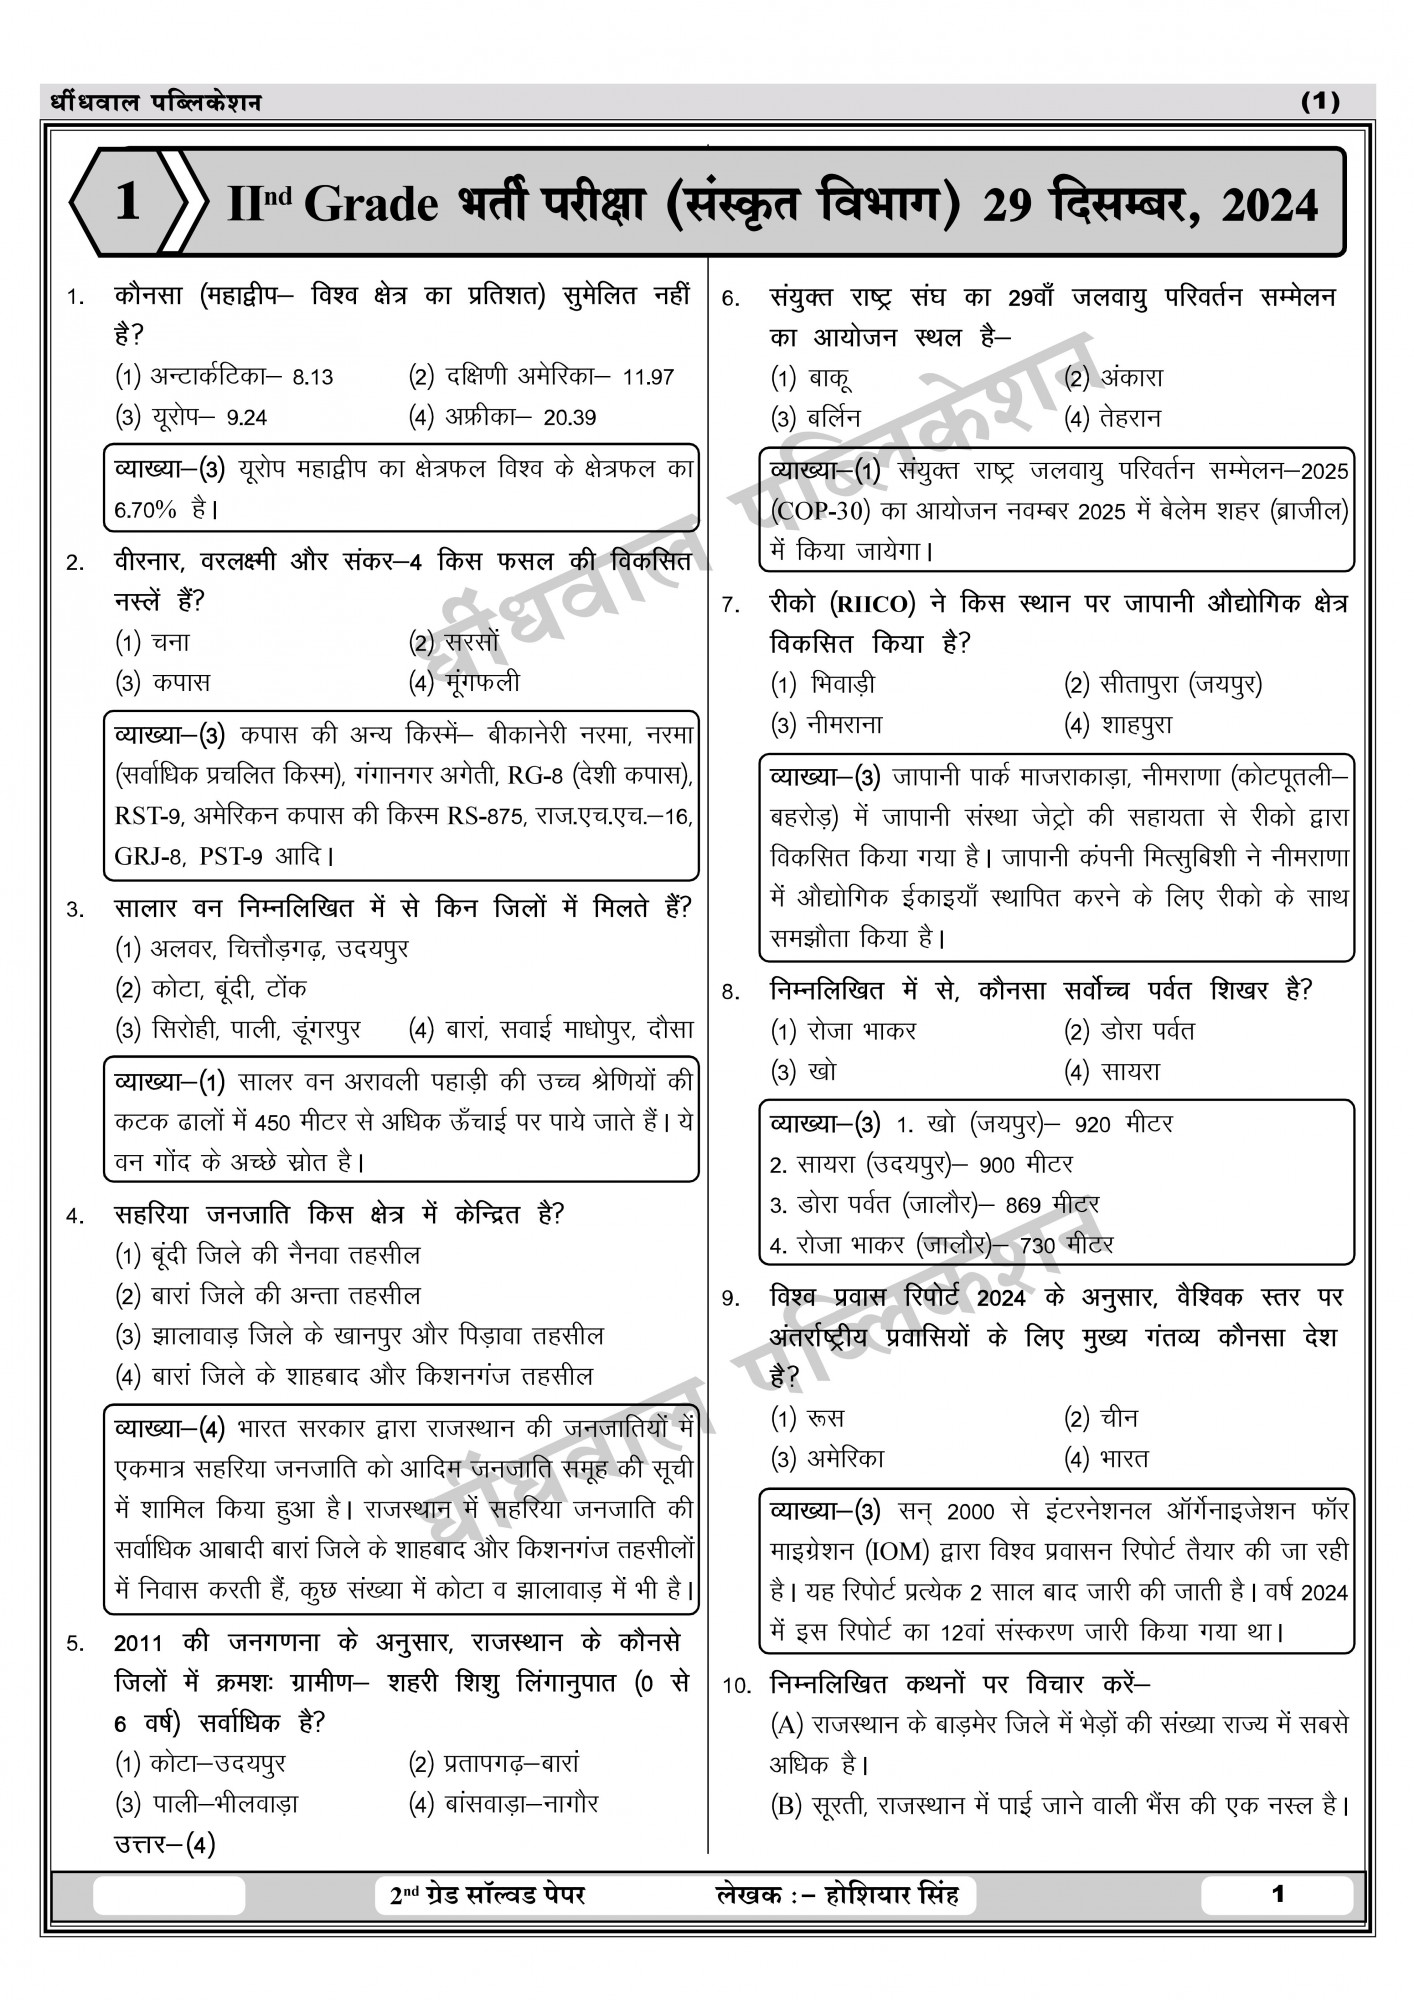 धींधवाल पब्लिकेशन
(1)
1
IInd Grade भर्ती परीक्षा (संस्कृत विभाग) 29 दिसम्बर, 2024
1. कौनसा (महाद्वीप– विश्व क्षेत्र का प्रतिशत) सुमेलित नहीं
है?
(1) अन्टार्कटिका– 8.13 (2) दक्षिणी अमेरिका– 11.97
(3) यूरोप– 9.24 (4) अफ्रीका– 20.39
व्याख्या–(3) यूरोप महाद्वीप का क्षेत्रफल विश्व के क्षेत्रफल का
6.70% है।
2. वीरनार, वरलक्ष्मी और संकर–4 किस फसल की विकसित
नस्लें हैं?
(1) चना (2) सरसों
(3) कपास (4) मूंगफली
व्याख्या–(3) कपास की अन्य किस्में– बीकानेरी नरमा, नरमा
(सर्वाधिक प्रचलित किस्म), गंगानगर अगेती, RG-8 (देशी कपास),
RST-9, अमेरिकन कपास की किस्म RS-875, राज.एच.एच.–16,
GRJ-8, PST-9 आदि।
3. सालार वन निम्नलिखित में से किन जिलों में मिलते हैं?
(1) अलवर, चित्तौड़गढ़, उदयपुर
(2) कोटा, बूंदी, टोंक
(3) सिरोही, पाली, डूंगरपुर (4) बारां, सवाई माधोपुर, दौसा
व्याख्या–(1) सालर वन अरावली पहाड़ी की उच्च श्रेणियों की
कटक ढालों में 450 मीटर से अधिक ऊँचाई पर पाये जाते हैं। ये
वन गोंद के अच्छे स्रोत है।
4. सहरिया जनजाति किस क्षेत्र में केन्द्रित है?
(1) बूंदी जिले की नैनवा तहसील
(2) बारां जिले की अन्ता तहसील
(3) झालावाड़ जिले के खानपुर और पिड़ावा तहसील
(4) बारां जिले के शाहबाद और किशनगंज तहसील
व्याख्या–(4) भारत सरकार द्वारा राजस्थान की जनजातियों में
एकमात्र सहरिया जनजाति को आदिम जनजाति समूह की सूची
में शामिल किया हुआ है। राजस्थान में सहरिया जनजाति की
सर्वाधिक आबादी बारां जिले के शाहबाद और किशनगंज तहसीलों
में निवास करती हैं, कुछ संख्या में कोटा व झालावाड़ में भी है।
5. 2011 की जनगणना के अनुसार, राजस्थान के कौनसे
जिलों में क्रमशः ग्रामीण– शहरी शिशु लिंगानुपात (0 से
6 वर्ष) सर्वाधिक है?
(1) कोटा–उदयपुर (2) प्रतापगढ़–बारां
(3) पाली–भीलवाड़ा (4) बांसवाड़ा–नागौर
उत्तर–(4)
6. संयुक्त राष्ट्र संघ का 29वाँ जलवायु परिवर्तन सम्मेलन
का आयोजन स्थल है–
(1) बाकू (2) अंकारा
(3) बर्लिन (4) तेहरान
व्याख्या–(1) संयुक्त राष्ट्र जलवायु परिवर्तन सम्मेलन–2025
(COP-30) का आयोजन नवम्बर 2025 में बेलेम शहर (ब्राजील)
में किया जायेगा।
7. रीको (RIICO) ने किस स्थान पर जापानी औद्योगिक क्षेत्र
विकसित किया है?
(1) भिवाड़ी (2) सीतापुरा (जयपुर)
(3) नीमराना (4) शाहपुरा
व्याख्या–(3) जापानी पार्क माजराकाड़ा, नीमराणा (कोटपूतली–
बहरोड़) में जापानी संस्था जेट्रो की सहायता से रीको द्वारा
विकसित किया गया है। जापानी कंपनी मित्सुबिशी ने नीमराणा
में औद्योगिक ईकाइयाँ स्थापित करने के लिए रीको के साथ
समझौता किया है।
8. निम्नलिखित में से, कौनसा सर्वोच्च पर्वत शिखर है?
(1) रोजा भाकर (2) डोरा पर्वत
(3) खो (4) सायरा
व्याख्या–(3) 1. खो (जयपुर)– 920 मीटर
2. सायरा (उदयपुर)– 900 मीटर
3. डोरा पर्वत (जालौर)– 869 मीटर
4. रोजा भाकर (जालौर)– 730 मीटर
9. विश्व प्रवास रिपोर्ट 2024 के अनुसार, वैश्विक स्तर पर
अंतर्राष्ट्रीय प्रवासियों के लिए मुख्य गंतव्य कौनसा देश
है?
(1) रूस (2) चीन
(3) अमेरिका (4) भारत
व्याख्या–(3) सन् 2000 से इंटरनेशनल ऑर्गेनाइजेशन फॉर
माइग्रेशन (IOM) द्वारा विश्व प्रवासन रिपोर्ट तैयार की जा रही
है। यह रिपोर्ट प्रत्येक 2 साल बाद जारी की जाती है। वर्ष 2024
में इस रिपोर्ट का 12वां संस्करण जारी किया गया था।
10. निम्नलिखित कथनों पर विचार करें–
(A) राजस्थान के बाड़मेर जिले में भेड़ों की संख्या राज्य में सबसे
अधिक है।
(B) सूरती, राजस्थान में पाई जाने वाली भैंस की एक नस्ल है।
धींधवाल पब्लिकेशन
धींधवाल पब्लिकेशन
2nd ग्रेड सॉल्वड पेपर लेखक :– होशियार सिंह 1